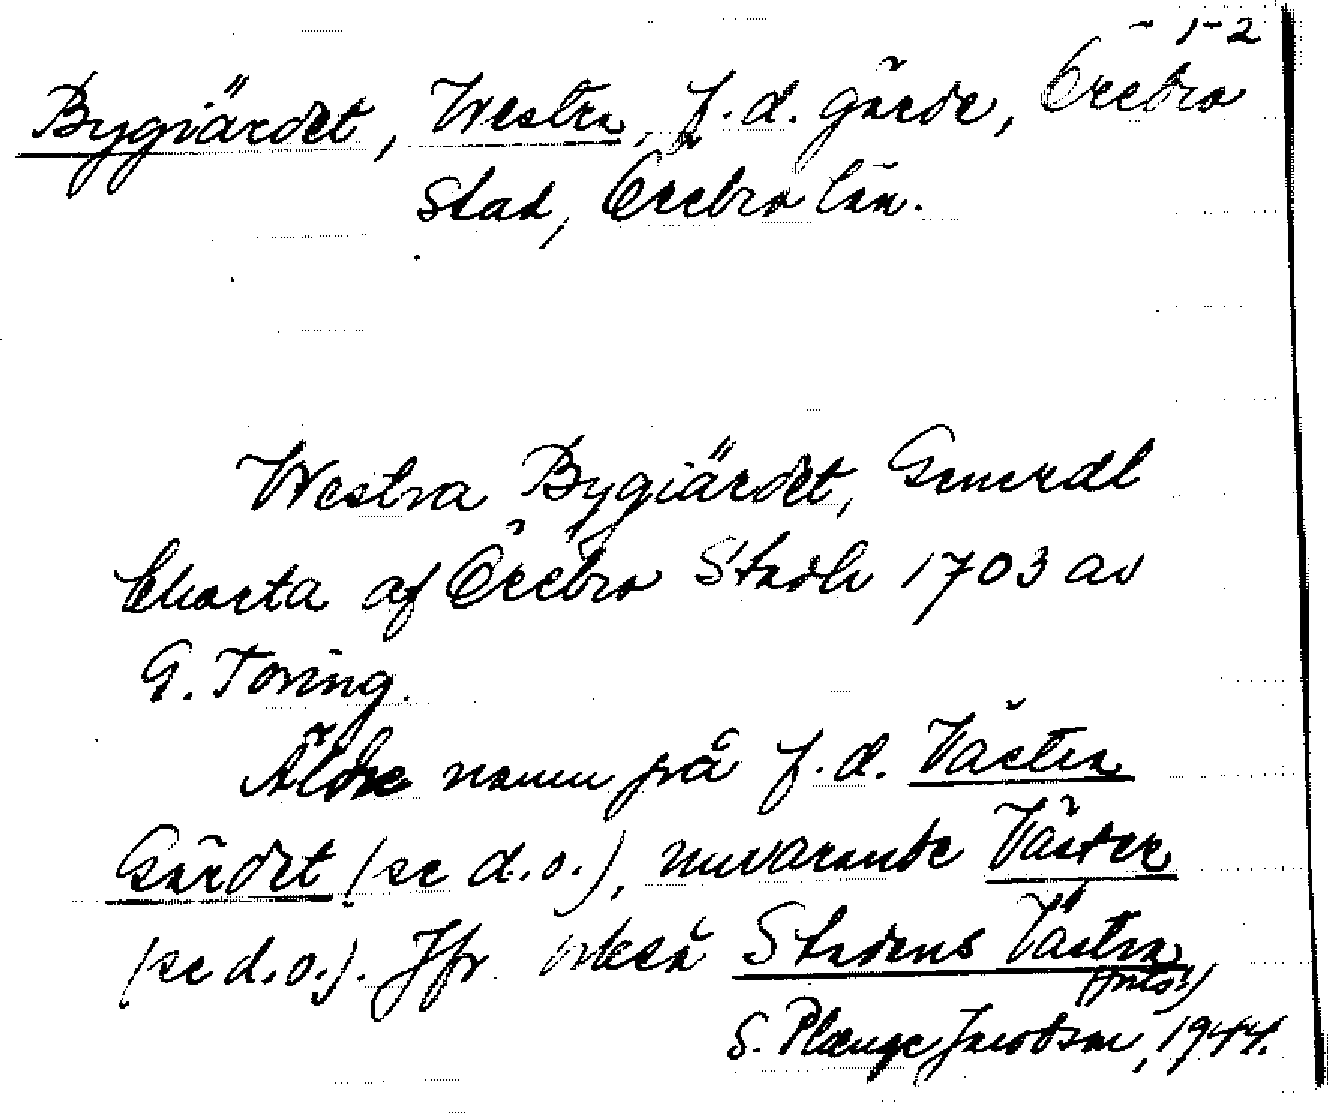 - 1-2
Bygiärdet, Westra, f.d. gärde, Örebro
stad, Örebro län.
Westra Bygiärdet, Generdl
Charta af Örebro Stadh 1703 av
G. Toring.
Äldre namn på f.d. Västra
Gärdet (se d.o.), nuvarande Väster
(se d.o.). Jfr också Stadens Västra
S. Plænge Jacobson, 1944.